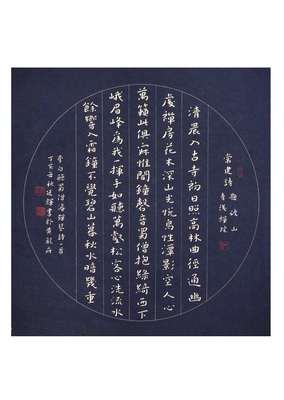 常建詩 題破山
寺後禪院
清晨入古寺初日照高林曲徑通幽
處禪房花木深山光悅鳥性潭影空人心
萬籟此俱寂惟聞鐘磬音蜀僧抱綠綺西下
峨眉峰為我一揮手如聽萬壑松客心洗流水
餘響入霜鐘不覺碧山暮秋水暗幾重
李白聽蜀僧濬彈琴詩一首
丁亥年秋 書於黃龍府